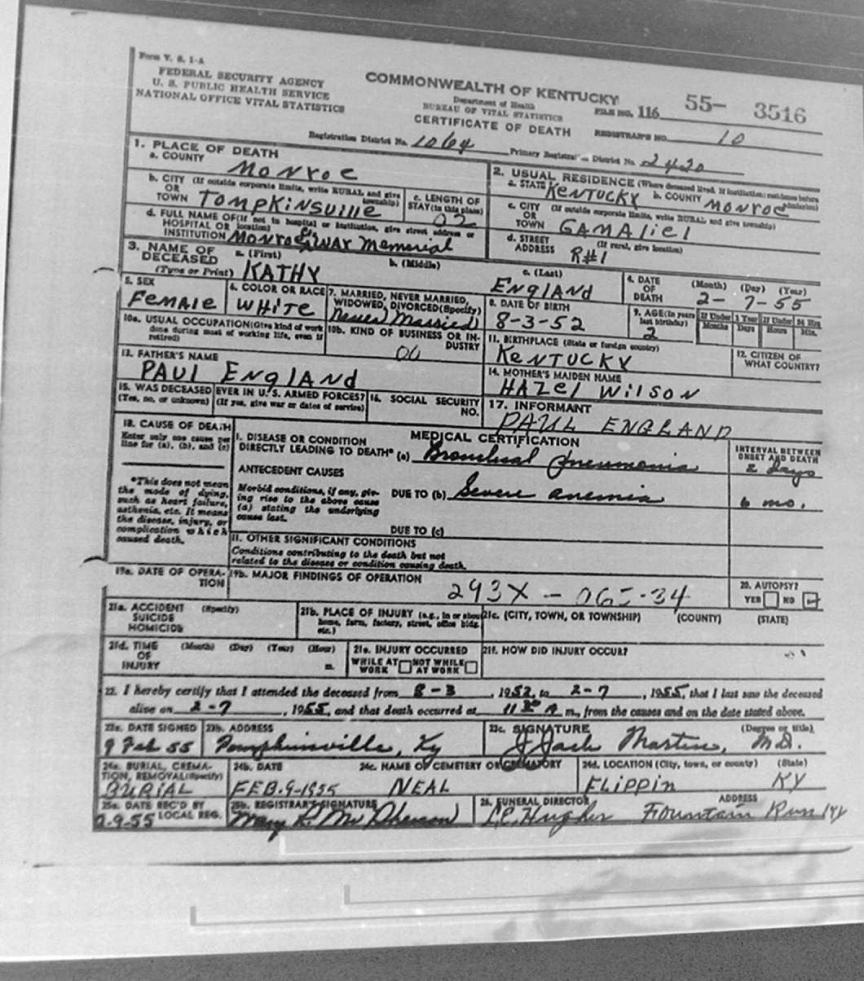 Form V. S. 1-A
FEDERAL SECURITY AGENCY
U. S. PUBLIC HEALTH SERVICE
NATIONAL OFFICE VITAL STATISTICS
COMMONWEALTH OF KENTUCKY
Department of Health
BUREAU OF VITAL STATISTICS
CERTIFICATE OF DEATH
FILE NO. 116 55- 3516
REGISTRAR'S NO. 10
Registration District No. 1064 Primary Registration District No. 2420
1. PLACE OF DEATH
a. COUNTY Monroe
b. CITY (If outside corporate limits, write RURAL and give township)
OR TOWN TOMPKINSVILLE
c. LENGTH OF STAY (in this place)
d. FULL NAME OF (If not in hospital or institution, give street address or location)
HOSPITAL OR INSTITUTION Monroe WAR Memorial
2. USUAL RESIDENCE (Where deceased lived. If institution: residence before admission)
a. STATE KENTUCKY b. COUNTY MONROE
c. CITY (If outside corporate limits, write RURAL and give township)
OR TOWN GAMALiel
d. STREET ADDRESS (If rural, give location) R#1
3. NAME OF DECEASED (Type or Print)
a. (First) KATHY b. (Middle) c. (Last) ENGLAND
4. DATE OF DEATH (Month) (Day) (Year) 2-7-55
5. SEX Female
6. COLOR OR RACE WHITE
7. MARRIED, NEVER MARRIED, WIDOWED, DIVORCED (Specify) Never Married
8. DATE OF BIRTH 8-3-52
9. AGE (In years last birthday) 2 If Under 1 Year Months Days If Under 24 Hrs Hours Min.
10a. USUAL OCCUPATION (Give kind of work done during most of working life, even if retired)
10b. KIND OF BUSINESS OR INDUSTRY
11. BIRTHPLACE (State or foreign country) KENTUCKY
12. CITIZEN OF WHAT COUNTRY?
13. FATHER'S NAME PAUL ENGLAND
14. MOTHER'S MAIDEN NAME HAZel WILSON
15. WAS DECEASED EVER IN U. S. ARMED FORCES? (Yes, no, or unknown) (If yes, give war or dates of service)
16. SOCIAL SECURITY NO.
17. INFORMANT PAUL ENGLAND
18. CAUSE OF DEATH
Enter only one cause per line for (a), (b), and (c)
*This does not mean the mode of dying, such as heart failure, asthenia, etc. It means the disease, injury, or complication which caused death.
MEDICAL CERTIFICATION
INTERVAL BETWEEN ONSET AND DEATH
I. DISEASE OR CONDITION DIRECTLY LEADING TO DEATH* (a) Bronchial pneumonia 2 days
ANTECEDENT CAUSES
Morbid conditions, if any, giving rise to the above cause (a) stating the underlying cause last.
DUE TO (b) Severe anemia 6 mo.
DUE TO (c)
II. OTHER SIGNIFICANT CONDITIONS
Conditions contributing to the death but not related to the disease or condition causing death.
19a. DATE OF OPERATION
19b. MAJOR FINDINGS OF OPERATION
293X -
20. AUTOPSY? YES NO
21a. ACCIDENT SUICIDE HOMICIDE (Specify)
21b. PLACE OF INJURY (e.g., in or about home, farm, factory, street, office bldg. etc.)
21c. (CITY, TOWN, OR TOWNSHIP) (COUNTY) (STATE)
21d. TIME OF INJURY (Month) (Day) (Year) (Hour) m.
21e. INJURY OCCURRED WHILE AT WORK NOT WHILE AT WORK
21f. HOW DID INJURY OCCUR?
22. I hereby certify that I attended the deceased from 8-3, 1952, to 2-7, 1955, that I last saw the deceased
alive on 2-7, 1955, and that death occurred at m., from the causes and on the date stated above.
23a. DATE SIGNED 9 Feb 55
23b. ADDRESS Tompkinsville, Ky
23c. SIGNATURE Jack Martin, M.D. (Degree or title)
24a. BURIAL, CREMATION, REMOVAL (Specify) BURIAL
24b. DATE FEB. 9-1955
24c. NAME OF CEMETERY OR CREMATORY NEAL
24d. LOCATION (City, town, or county) (State) FLIPPIN KY
25a. DATE REC'D BY LOCAL REG. 2.9.55
25b. REGISTRAR'S SIGNATURE Mary McPherson
26. FUNERAL DIRECTOR ADDRESS Hughes Fountain Run Ky